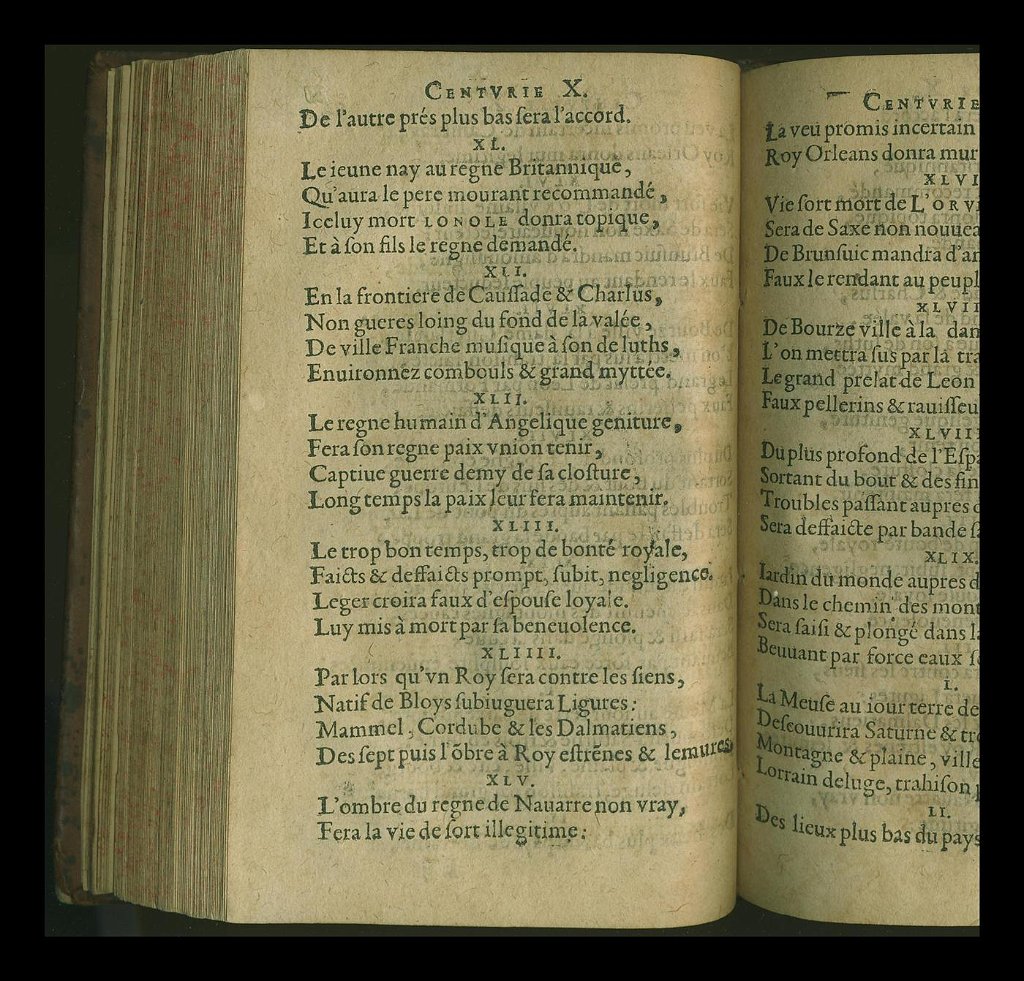 CENTVRIE X.
De l'autre prés plus bas ſera l'accord.
XL.
Le ieune nay au regne Britannique,
Qu'aura le pere mourant recommandé,
Iceluy mort LONOLE donra topique,
Et à ſon fils le regne demandé.
XLI.
En la frontiere de Cauſſade & Charlus,
Non gueres loing du fond de la valée,
De ville Franche muſique à ſon de luths,
Enuironnez combouls & grand myttée.
XLII.
Le regne humain d'Angelique geniture,
Fera ſon regne paix vnion tenir,
Captiue guerre demy de ſa cloſture,
Long temps la paix leur fera maintenir.
XLIII.
Le trop bon temps, trop de bonté royale,
Faicts & deffaicts prompt, ſubit, negligence.
Leger croira faux d'eſpouſe loyale.
Luy mis à mort par ſa beneuolence.
XLIIII.
Par lors qu'vn Roy ſera contre les ſiens,
Natif de Bloys ſubiuguera Ligures:
Mammel, Cordube & les Dalmatiens,
Des ſept puis l'õbre à Roy eſtrẽnes & lemures
XLV.
L'ombre du regne de Nauarre non vray,
Fera la vie de ſort illegitime:
CENTVRIE
La veu promis incertain
Roy Orleans donra mur
XLVI
Vie ſort mort de L'ORVI
Sera de Saxe non nouuea
De Brunſuic mandra d'ar
Faux le rendant au peupl
XLVII
De Bourze ville à la dan
L'on mettra ſus par la tra
Le grand prelat de Leon
Faux pellerins & rauiſſeu
XLVIII
Du plus profond de l'Eſpa
Sortant du bout & des fin
Troubles paſſant aupres d
Sera deffaicte par bande ſ
XLIX.
Iardin du monde aupres d
Dans le chemin des mont
Sera ſaiſi & plongé dans l
Beuuant par force eaux ſ
L.
La Meuſe au iour terre de
Deſcouurira Saturne & tr
Montagne & plaine, ville
Lorrain deluge, trahiſon
LI.
Des lieux plus bas du pays